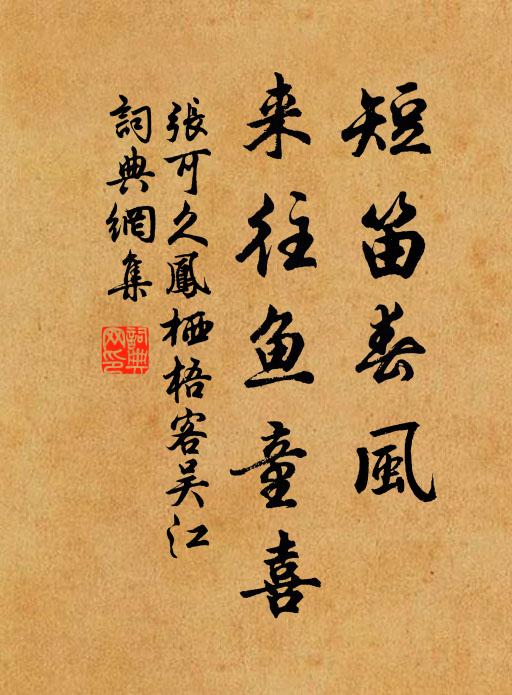 短笛春風
来往鱼童喜
張可久鳳栖梧客吴江
詞典網集
詞典網印